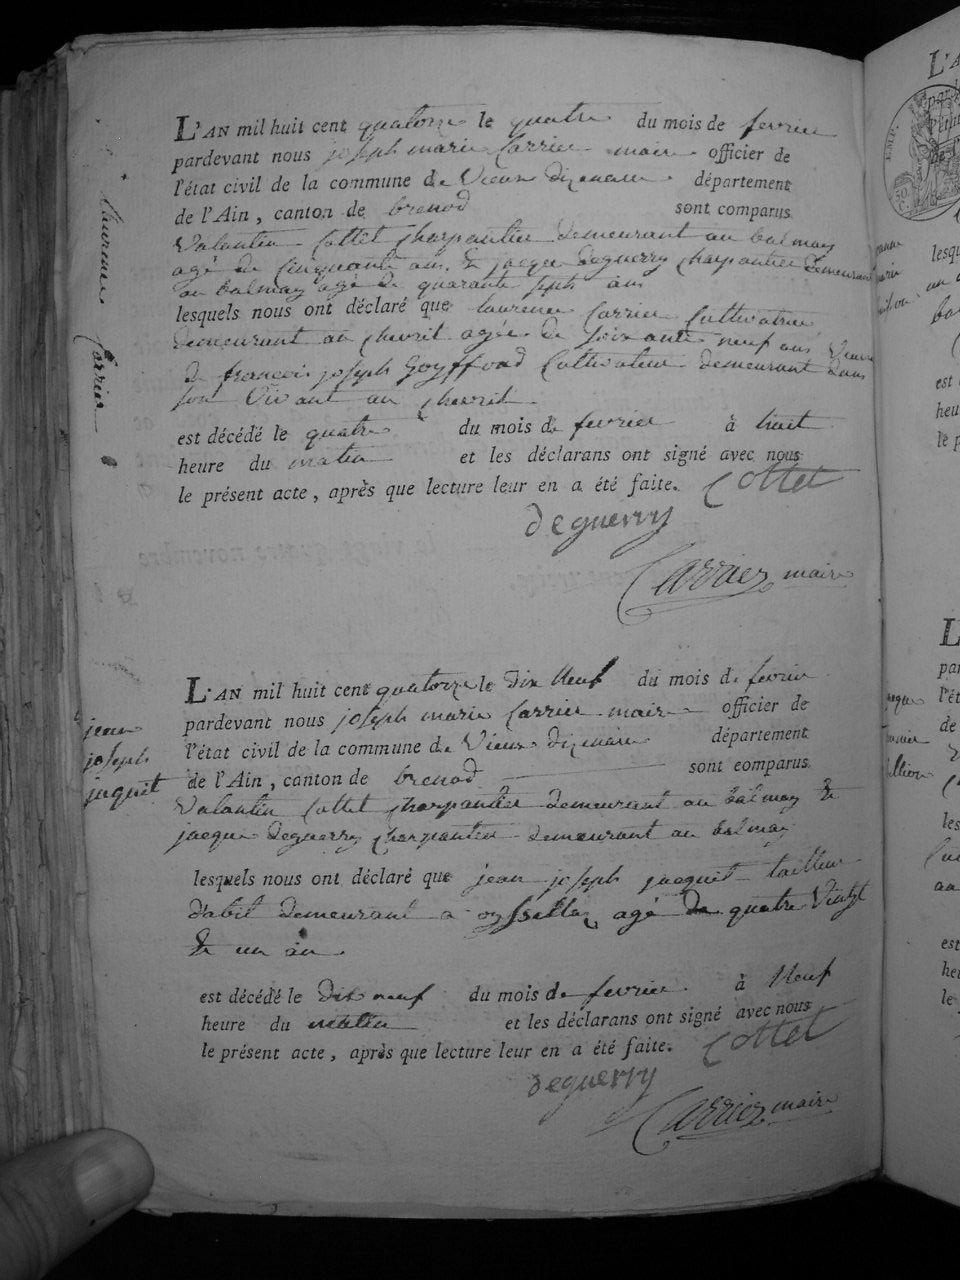 L'AN mil huit cent quatorze le quatre du mois de fevrier
pardevant nous joseph marie Carrier maire officier de
l'état civil de la commune de Vieux dizenave département
de l'Ain, canton de brenod sont comparus
Valantin Cottet charpantier demeurant au balmay
agé de cinquante ans & jacque deguerry charpantier demeurant
au balmay agé de quarante sept ans
lesquels nous ont déclaré que laurence Carrier Cultivatrice
demeurant au chevril agée de soixante neuf ans Veuve
de francois joseph goyffond Cultivateur demeurant dans
son Vivant au chevril
est décédé le quatre du mois de fevrier à huit
heure du matin et les déclarans ont signé avec nous
le présent acte, après que lecture leur en a été faite. Cottet
deguerry
Carrier maire
Laurence Carrier
L'AN mil huit cent quatorze le dix Neuf du mois de fevrier
pardevant nous joseph marie Carrier maire officier de
l'état civil de la commune de Vieux dizenave département
de l'Ain, canton de brenod sont comparus
Valantin Cottet charpantier demeurant au balmay &
jacque deguerry charpantier demeurant au balmay
lesquels nous ont déclaré que jean joseph jaquit tailleur
d'abit demeurant a agé de quatre Vingt
& un an
est décédé le dix neuf du mois de fevrier à Neuf
heure du matin et les déclarans ont signé avec nous
le présent acte, après que lecture leur en a été faite. Cottet
deguerry
Carrier maire
jean
joseph
jaquit